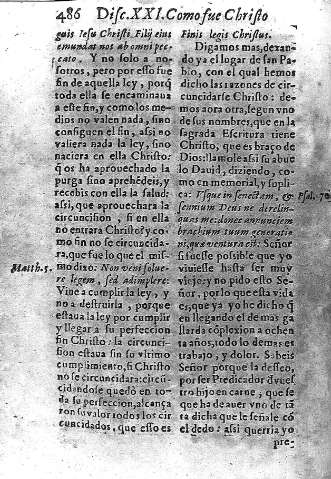 486 Disc. XXI. Como fue Christo
guis Iesu Christi Filij eius
emundat nos ab omni pec-
cato. Y no solo a no-
sotros, pero por esso fue
fin de aquella ley, porq̃
toda ella se encaminaua
a este fin, y como los me-
dios no valen nada, sino
consiguen el fin, assi no
valiera nada la ley, sino
naciera en ella Christo:
q̃ os ha aprouechado la
purga sino aprehẽdeis, y
recebis con ella la salud:
assi, que aprouechara la
circuncision, si en ella
no entrara Christo? y co-
mo fin no se circuncida-
ra, que fue lo que el mis-
Matth. 5. mo dixo: Non veni solue-
re legem, sed adimplere:
Vine a cumplir la ley, y
no a destruirla, porque
estaua la ley por cumplir
y llegar a su perfeccion
sin Christo: la circunci-
sion estaua sin su vltimo
cumplimiento, si Christo
no se circuncidara: circũ-
cidandose quedò en to-
da su perfeccion, alcança
ron su valor todos los cir
cuncidados, que esso es
Finis legis Christus.
Digamos mas, dexan-
do ya el lugar de san Pa-
blo, con el qual hemos
dicho las razones de cir-
cuncidarse Christo: de-
mos aora otra, segun vno
de sus nombres, que en la
sagrada Escritura tiene
Christo, que es braço de
Dios: llamole assi su abue
lo Dauid, diziendo, co-
mo en memorial, y supli-
ca: Vsque in senectam, &
senium Deus ne derelin- Psal. 70
quas me: donec annuntiem
brachium tuum generatio
ni, quæ ventura est: Señor
si fuesse possible que yo
viuiesse hasta ser muy
viejo: y no pido esto Se-
ñor, porlo que esta vida
es, que ya yo he dicho q̃
en llegando el de mas ga
llarda cõplexion a ochen
ta años, todo lo demas es
trabajo, y dolor. Sabeis
Señor porque la desseo,
por ser Predicador d vues
tro hijo en carne, que se
que ha de auer vno de tã
ta dicha que le señale cõ
el dedo: assi querria yo
pre-